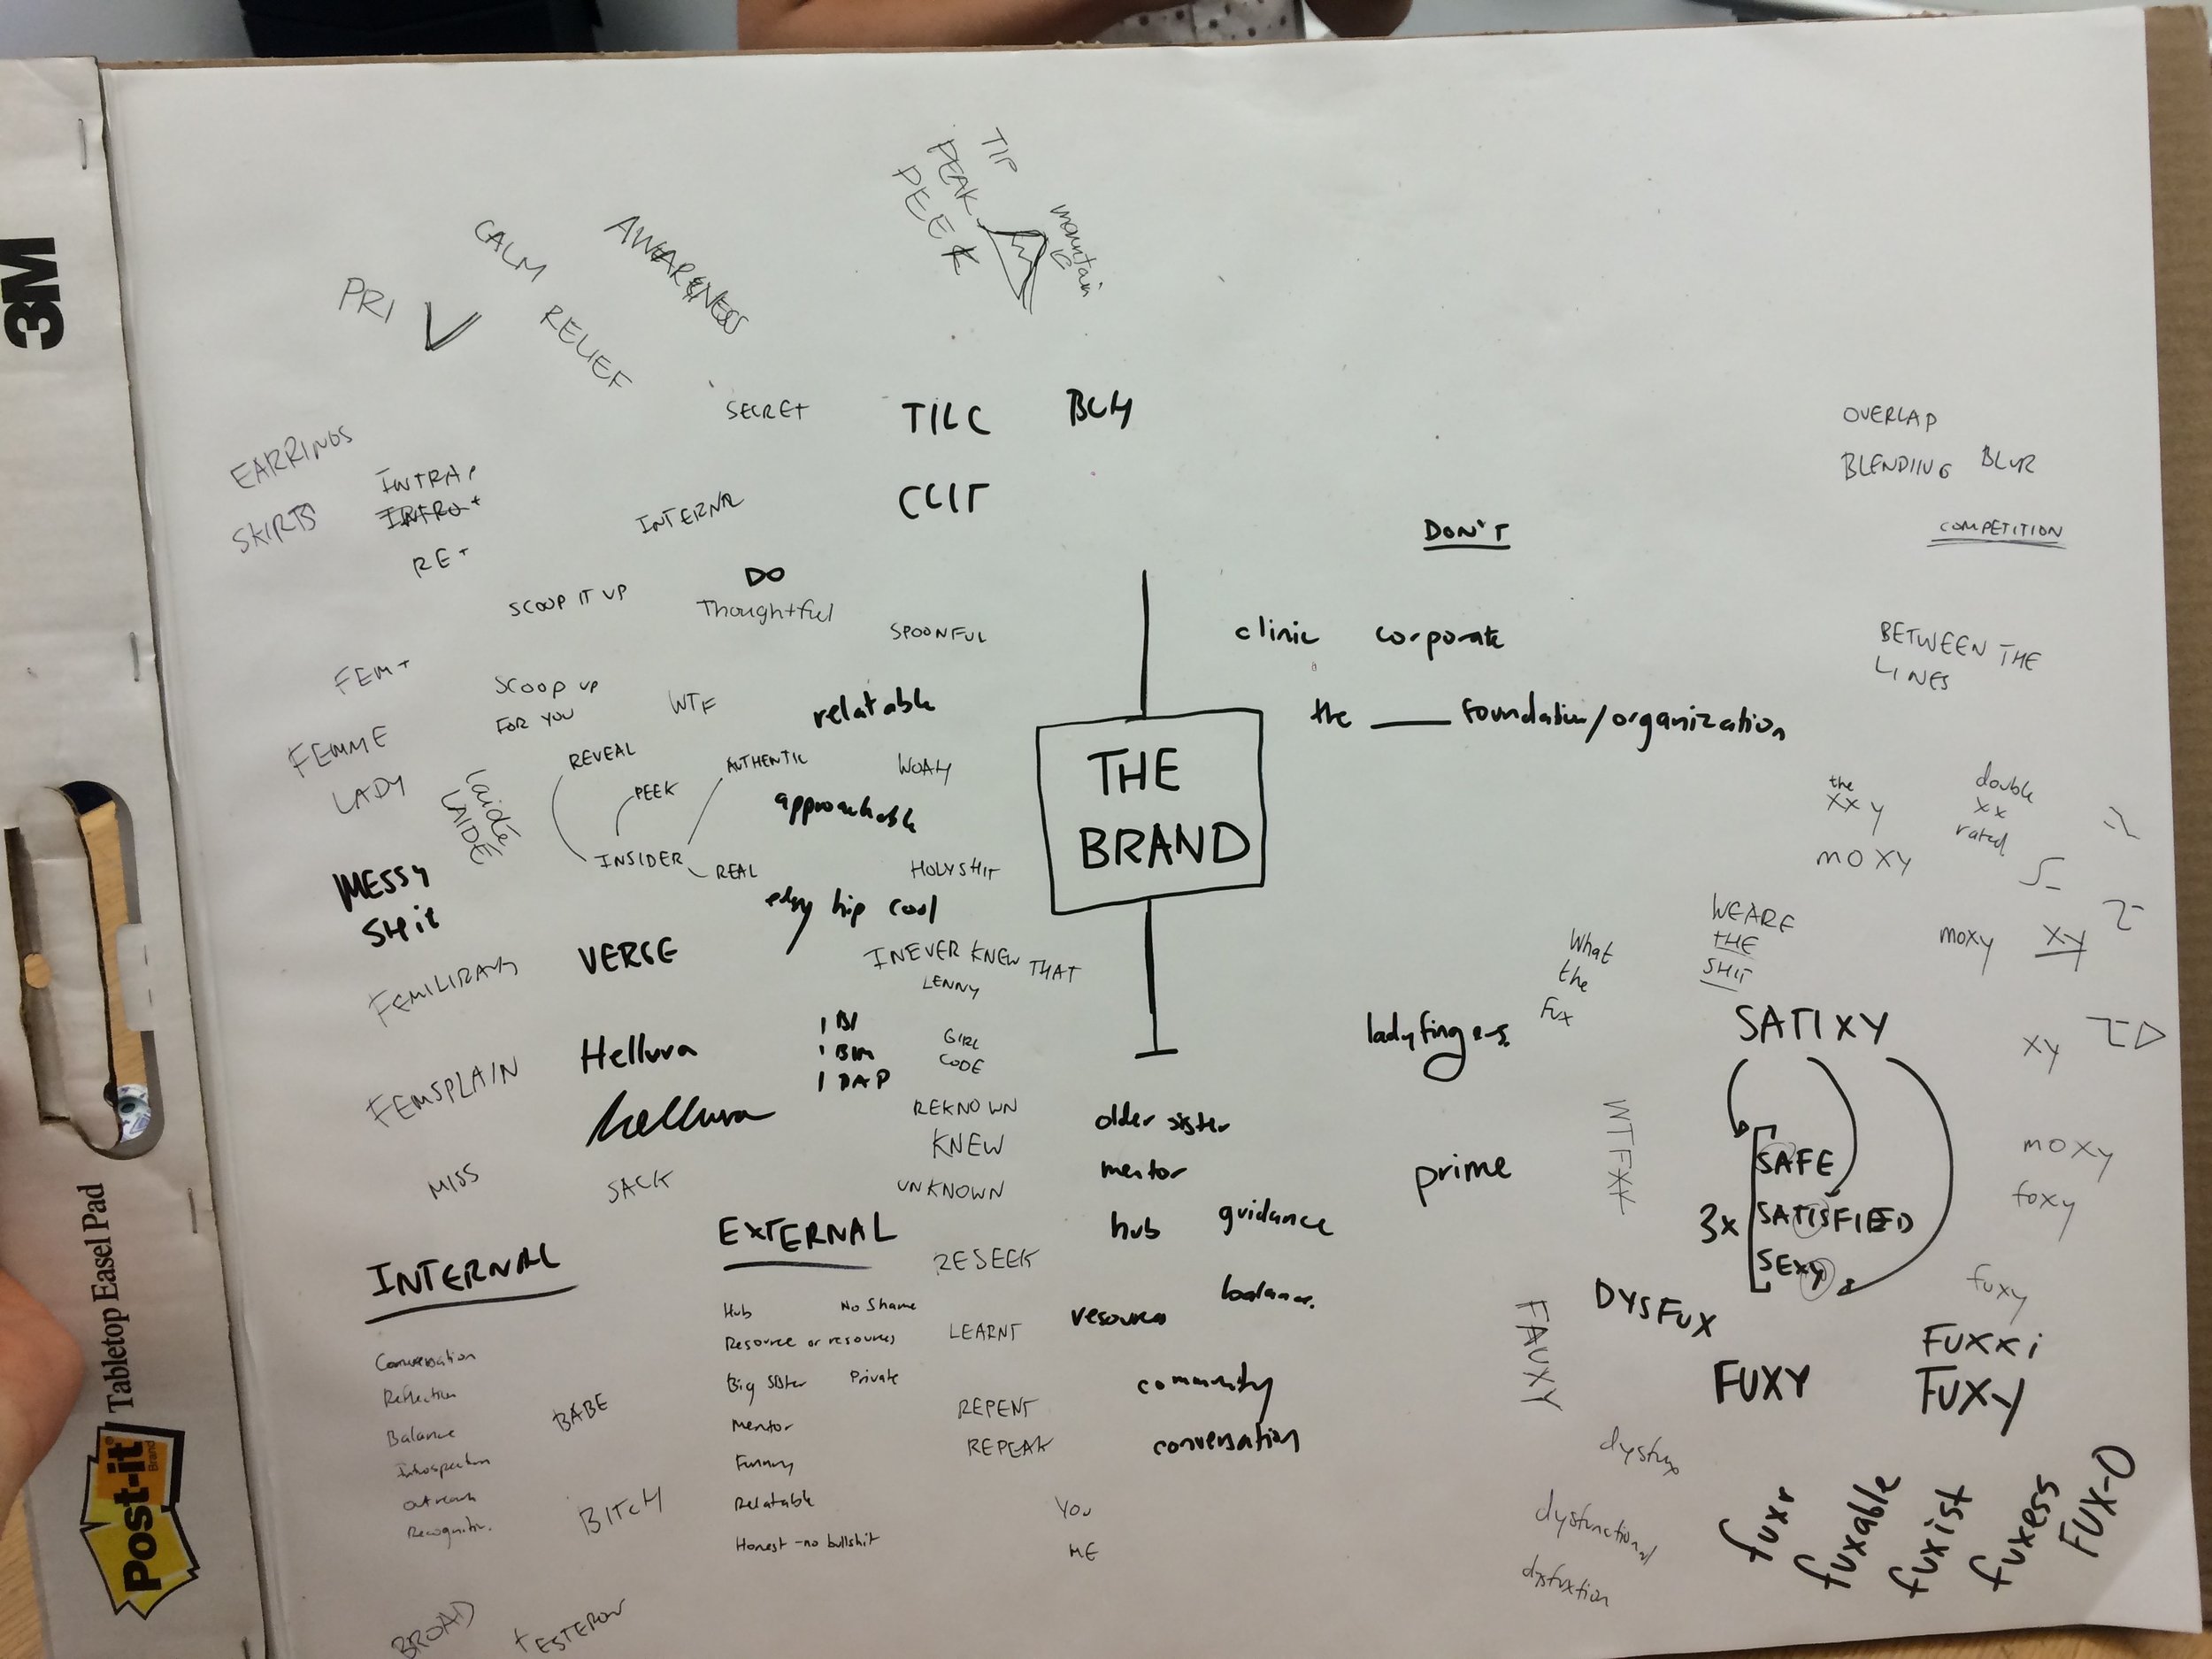 3M
Post-it
Brand
Tabletop Easel Pad
TIP
PEAK
PEEK
mountain
CALM
AWARENESS
PRI
RELIEF
SECRET
TILC
CLIT
EARRINGS
SKIRTS
INTRA
RE+
INTERNAL
SCOOP IT UP
DO
Thoughtful
SPOONFUL
FEM+
FEMME
LADY
SCOOP UP
FOR YOU
WTF
relatable
REVEAL
PEEK
AUTHENTIC
INSIDER
REAL
WOAH
approachable
HOLY SHIT
edgy hip cool
LAIDE
MESSY
SHit
VERGE
I NEVER KNEW THAT
LENNY
FEMSPLAIN
Hellura
hellura
GIRL
CODE
REKNOWN
KNEW
UNKNOWN
MISS
SACK
RESEEK
LEARNT
REPENT
REPEAK
YOU
ME
THE
BRAND
DON'T
clinic corporate
the ____ foundation/organization
OVERLAP
BLENDING BLUR
COMPETITION
BETWEEN THE
LINES
the
XXY
moxy
double
xx
rated
WE ARE
THE
SHIT
What
the
Fux
moxy
xy
ladyfingers
SATIXY
xy
SAFE
3x SATISFIED
SEXY
moxy
foxy
fuxy
older sister
mentor
hub guidance
balance
resources
community
conversation
prime
WTFXX
FAUXY
DYSFUX
FUXY
FUXXi
FUXY
dysfux
dysfunctional
dysfuxtion
fuxr
fuxable
fuxist
fuxess
FUX-O
INTERNAL
Conversation
Reflection
Balance
Introspection
outreach
Recognition
BABE
BITCH
BROAD
EXTERNAL
Hub No Shame
Resource or resources
Big Sister Private
Mentor
Funny
Relatable
Honest - no bullshit